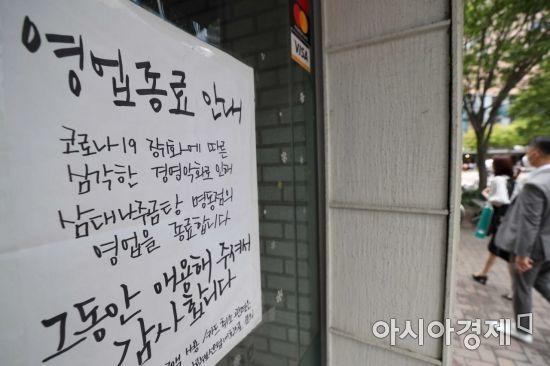 영업종료 안내
코로나19 장기화에 따른
심각한 경영악화로 인해
삼대나주곰탕 명동점의
영업을 종료합니다
그동안 애용해 주셔서
감사합니다
VISA
아시아경제